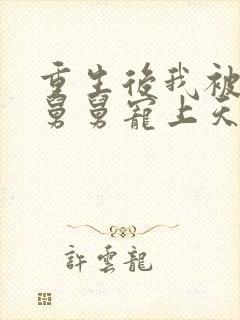 重生後我被
舅舅寵上天
許雲龍